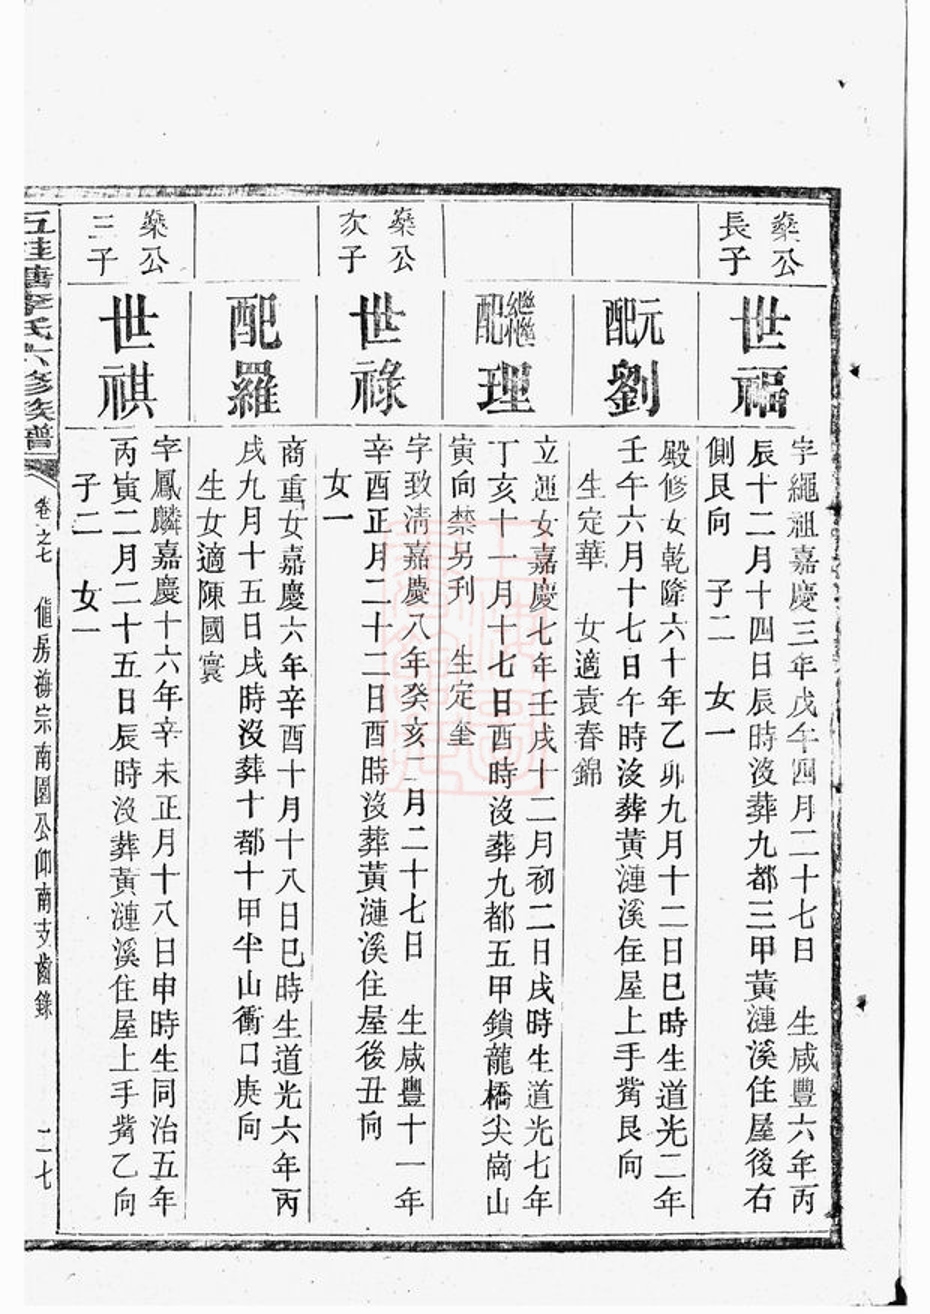 燊公
長子
世福
字繩祖嘉慶三年戊午四月二十七日 生咸豐六年丙
辰十二月十四日辰時沒葬九都三甲黃漣溪住屋後右
側艮向 子二 女一
元配劉
殿修女乾隆六十年乙卯九月十二日巳時生道光二年
壬午六月十七日午時沒葬黃漣溪住屋上手觜艮向
生定華 女適袁春錦
繼配理
立運女嘉慶七年壬戌十二月初二日戌時生道光七年
丁亥十一月十七日酉時沒葬九都五甲鎖龍橋尖崗山
寅向禁另刊 生定奎
燊公
次子
世祿
字致清嘉慶八年癸亥二月二十七日 生咸豐十一年
辛酉正月二十二日酉時沒葬黃漣溪住屋後丑向
女一
配羅
商重女嘉慶六年辛酉十月十八日巳時生道光六年丙
戌九月十五日戌時沒葬十都十甲半山衝口庚向
生女適陳國寰
燊公
三子
世祺
字鳳麟嘉慶十六年辛未正月十八日申時生同治五年
丙寅二月二十五日辰時沒葬黃漣溪住屋上手觜乙向
子二 女一
五桂塘李氏六修族譜
卷之七
房海宗南園公仰南支齒錄
二七